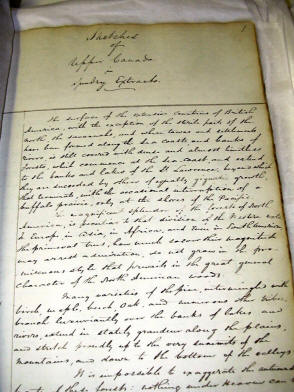 1
Sketches
of
Upper Canada
&
Sundry Extracts.
The surface of the extensive Countries of British
America, with the exception of the sterile part of the
north, the savannahs, and where towns and settlements
have been formed along the sea coasts and banks of
rivers, is still covered with dense and almost trackless
forests, which commence at the sea coast, and extend
to the banks and lakes of the St Lawrence, beyond which
they are succeeded by others of equally gigantic growth,
that terminate, with the occasional interruption of a
buffalo prairie, only at the shores of the Pacific.
In magnificent splendour the forests of North
America, is peculiar to that division of the Western world.
In Europe, in Asia, in Africa, and even in South America
the primeval trees, how much soever their magnitude
may arrest admiration, do not grow in the pro-
miscuous style that prevails in the great general
character of the North American woods.
Many varieties of the pine, intermingled with
birch, maple, beech, oak, and numerous other tribes,
branch luxuriantly over the banks of lakes and
rivers, extend in stately grandeur along the plains,
and stretch proudly up to the very summits of the
mountains, and down to the bottom of the valleys.
It is impossible to exaggerate the autumnal
beauty of these forests: nothing under heaven can